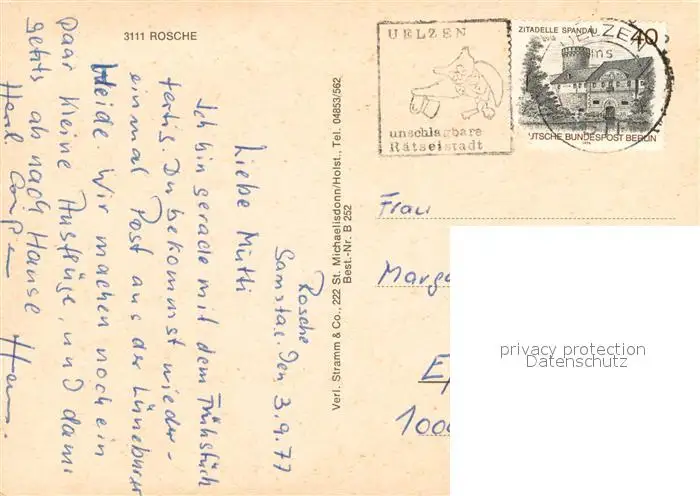 3111 ROSCHE
Rosche
Samstag, den 3.9.77
Liebe Mutti
Ich bin gerade mit dem Frühstück
fertig. Du bekommst wieder-
einmal Post aus der Lüneburger
Heide. Wir machen noch ein
paar kleine Ausflüge, und dann
gehts ab nach Hause
Herzl. Grüße
Hans.
Verl. Stramm & Co., 222 St. Michaelisdonn/Holst., Tel. 04853/562
Best.-Nr. B 252
UELZEN
unschlagbare
Rätselstadt
UELZEN
ZITADELLE SPANDAU
40
DEUTSCHE BUNDESPOST BERLIN
Frau
Marga
1000
privacy protection
Datenschutz